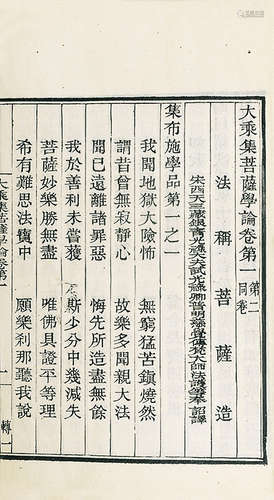 大乘集菩薩學論卷第一 第二同卷
法稱菩薩造
宋西天三藏銀青光祿大夫試光祿卿普明慈覺傳梵大師法護等奉 詔譯
集布施學品第一之一
我聞地獄大險怖 無窮猛苦鎮燒然
謂昔曾無寂靜心 故樂多聞親大法
聞已遠離諸罪惡 悔先所造盡無餘
我於善利未嘗獲 斯少分中幾減失
菩薩妙樂勝無盡 唯佛具證平等理
希有難思法寶中 願樂剎那聽我說
大乘集菩薩學論卷第一 一 轉一